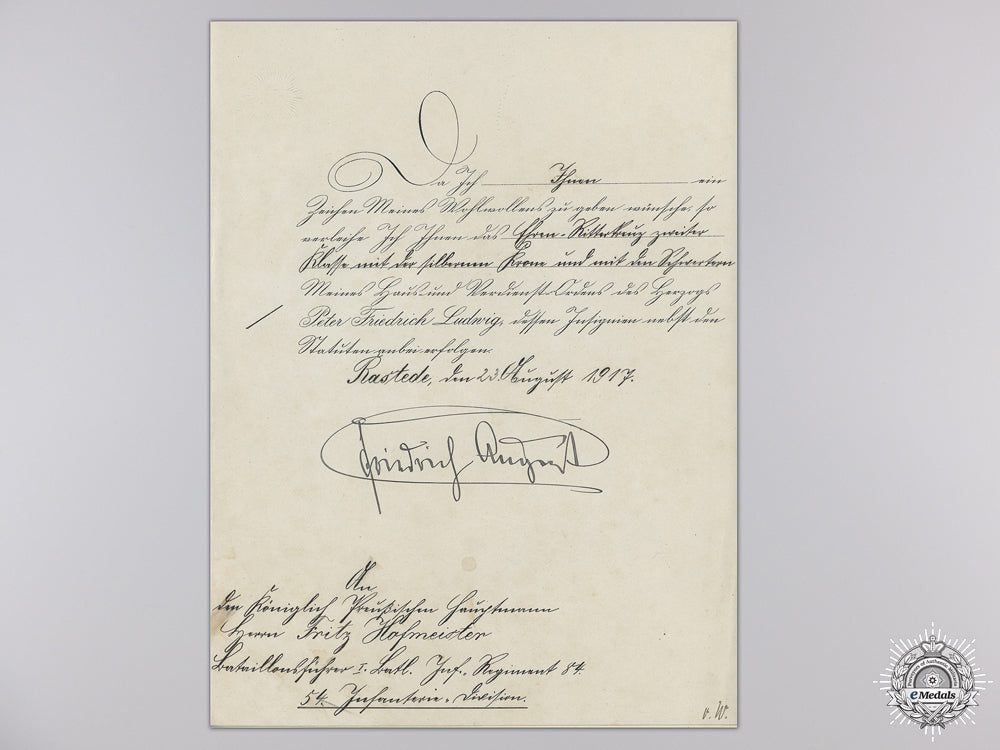 Da Ich Ihnen ein
Zeichen Meines Wohlwollens zu geben wünsche, so
verleihe Ich Ihnen das Ehren-Ritterkreuz zweiter
Klasse mit der silbernen Krone und mit den Schwertern
Meines Haus- und Verdienst-Ordens des Herzogs
Peter Friedrich Ludwig, dessen Insignien nebst den
Statuten anbei erfolgen.
Rastede, den 23. August 1917.
Friedrich August
An
den Königlich Preußischen Hauptmann
Herrn Fritz Hofmeister
Bataillonsführer I. Batl. Inf.-Regiment 84.
54. Infanterie-Division.
v. W.
eMedals